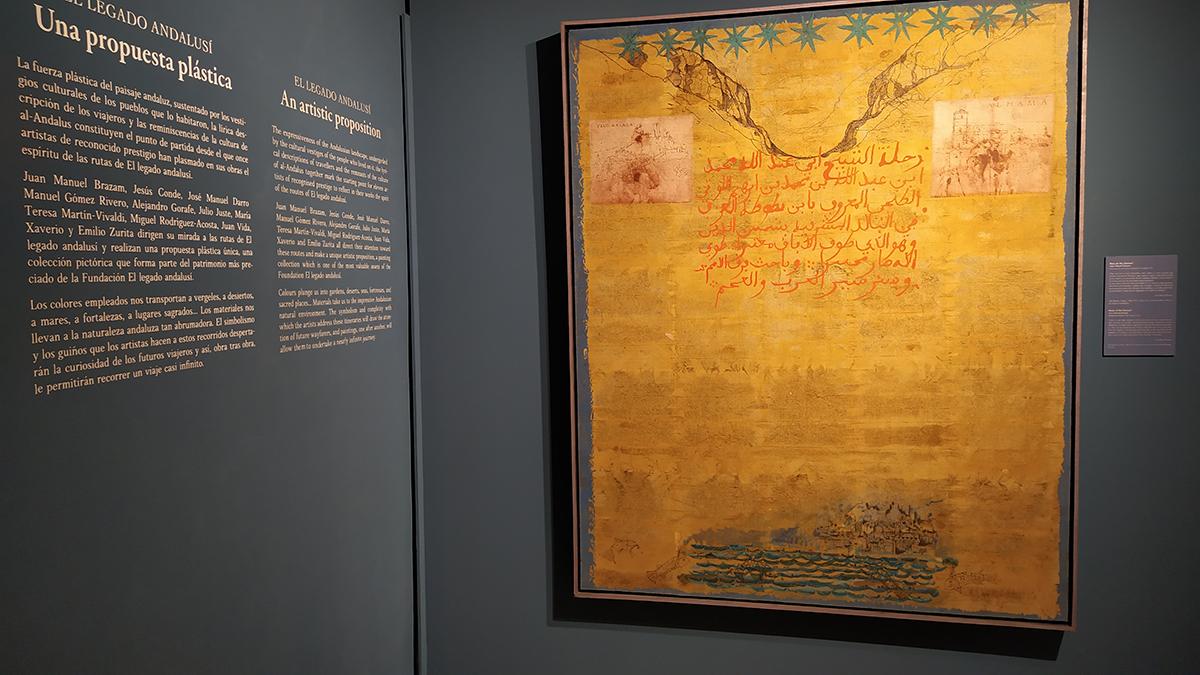 EL LEGADO ANDALUSÍ
Una propuesta plástica
La fuerza plástica del paisaje andaluz, sustentado por los vesti-
gios culturales de los pueblos que lo habitaron, la lírica des-
cripción de los viajeros y las reminiscencias de la cultura de
al-Andalus constituyen el punto de partida desde el que once
artistas de reconocido prestigio han plasmado en sus obras el
espíritu de las rutas de El legado andalusí.
Juan Manuel Brazam, Jesús Conde, José Manuel Darro
Manuel Gómez Rivero, Alejandro Gorafe, Julio Juste, María
Teresa Martín-Vivaldi, Miguel Rodríguez-Acosta, Juan Vida,
Xaverio y Emilio Zurita dirigen su mirada a las rutas de El
legado andalusí y realizan una propuesta plástica única, una
colección pictórica que forma parte del patrimonio más pre-
ciado de la Fundación El legado andalusí.
Los colores empleados nos transportan a vergeles, a desiertos,
a mares, a fortalezas, a lugares sagrados... Los materiales nos
llevan a la naturaleza andaluza tan abrumadora. El simbolismo
y los guiños que los artistas hacen a estos recorridos desperta-
rán la curiosidad de los futuros viajeros y así, obra tras obra,
le permitirán recorrer un viaje casi infinito.
EL LEGADO ANDALUSÍ
An artistic proposition
The expressiveness of the Andalusian landscape, undergirded
by the cultural vestiges of the people who lived there, the lyri-
cal descriptions of travellers and the remnants of the culture
of al-Andalus together mark the starting point for eleven ar-
tists of recognised prestige to reflect in their works the spirit
of the routes of El legado andalusí.
Juan Manuel Brazam, Jesús Conde, José Manuel Darro,
Manuel Gómez Rivero, Alejandro Gorafe, Julio Juste, María
Teresa Martín-Vivaldi, Miguel Rodríguez-Acosta, Juan Vida,
Xaverio and Emilio Zurita all direct their attention toward
these routes and make a unique artistic proposition, a painting
collection which is one of the most valuable assets of the
Foundation El legado andalusí.
Colours plunge us into gardens, deserts, seas, fortresses, and
sacred places... Materials take us to the impressive Andalusian
natural environment. The symbolism and complicity with
which the artists address these itineraries will draw the atten-
tion of future wayfarers, and paintings, one after another, will
allow them to undertake a nearly infinite journey.
رحلة الشيخ ابي عبد الله محمد
ابن عبد الله بن محمد بن ابرهيم اللواتي
الطنجي المعروف بابن بطوطة
في البلاد المشرقية بشمس الدين
وهو الذي طوف الأرض
العرب والعجم